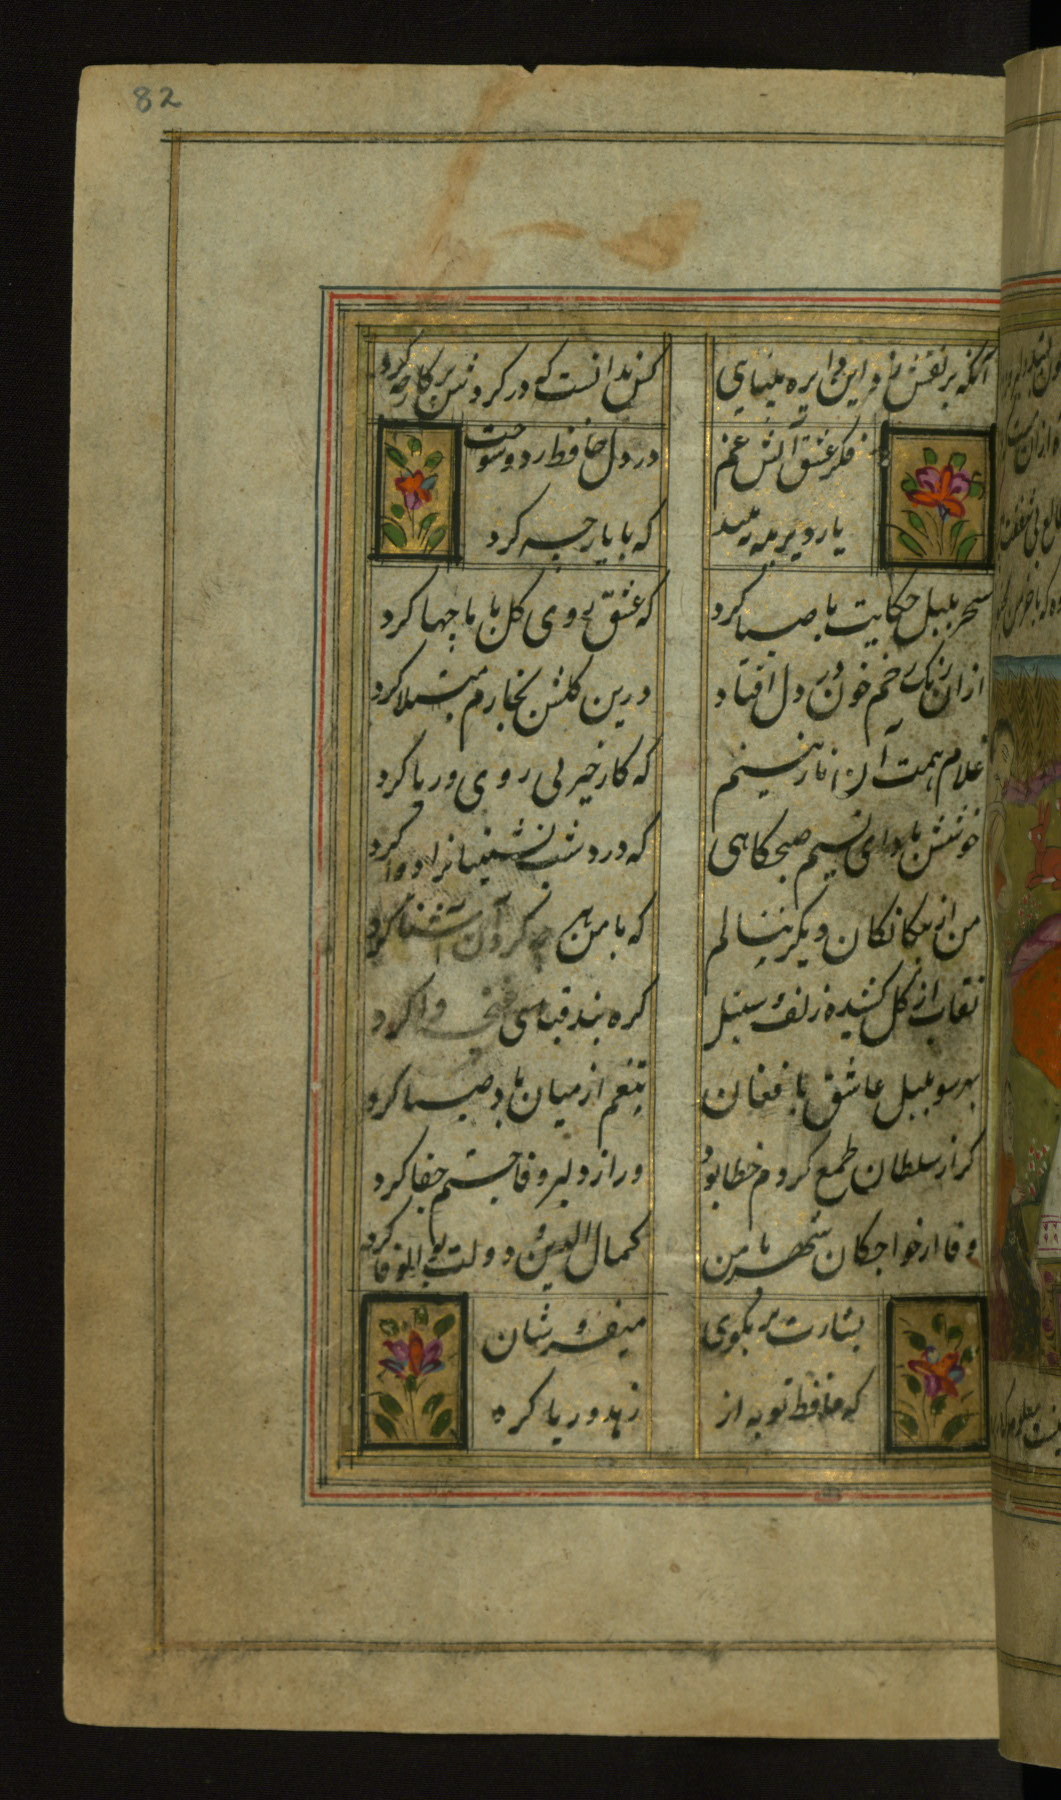 82
آنکه بر نقش زد این دایره مینایی
کس ندانست که در کردش پرکار چه کرد
فکر عشق آتش غم
در دل حافظ زد و سوخت
یار دیرینه ببینید
که با یار چه کرد
سحر بلبل حکایت با صبا کرد
که عشق روی کل با ما چها کرد
ازان رنک رخم خون در دل افتاد
درین کلشن بخارم مبتلا کرد
غلام همت آن نازنینم
که کار خیر بی روی و ریا کرد
خوشش باد ای نسیم صبحکاهی
که درد شب نشینانرا دوا کرد
من از بیکانکان دیکر ننالم
که با من هر چه کرد آن آشنا کرد
نقاب از کل کشیده زلف سنبل
کره بند قبای غنچه وا کرد
بهر سو بلبل عاشق بافغان
تنعم از میان باد صبا کرد
کر از سلطان طمع کردم خطا بود
ور از دلبر وفا جستم جفا کرد
وفا از خواجکان شهر با من
کمال الدین و دولت بوالوفا کرد
بشارت بر بکوی
میفروشان
که حافظ توبه از
زهد و ریا کرد